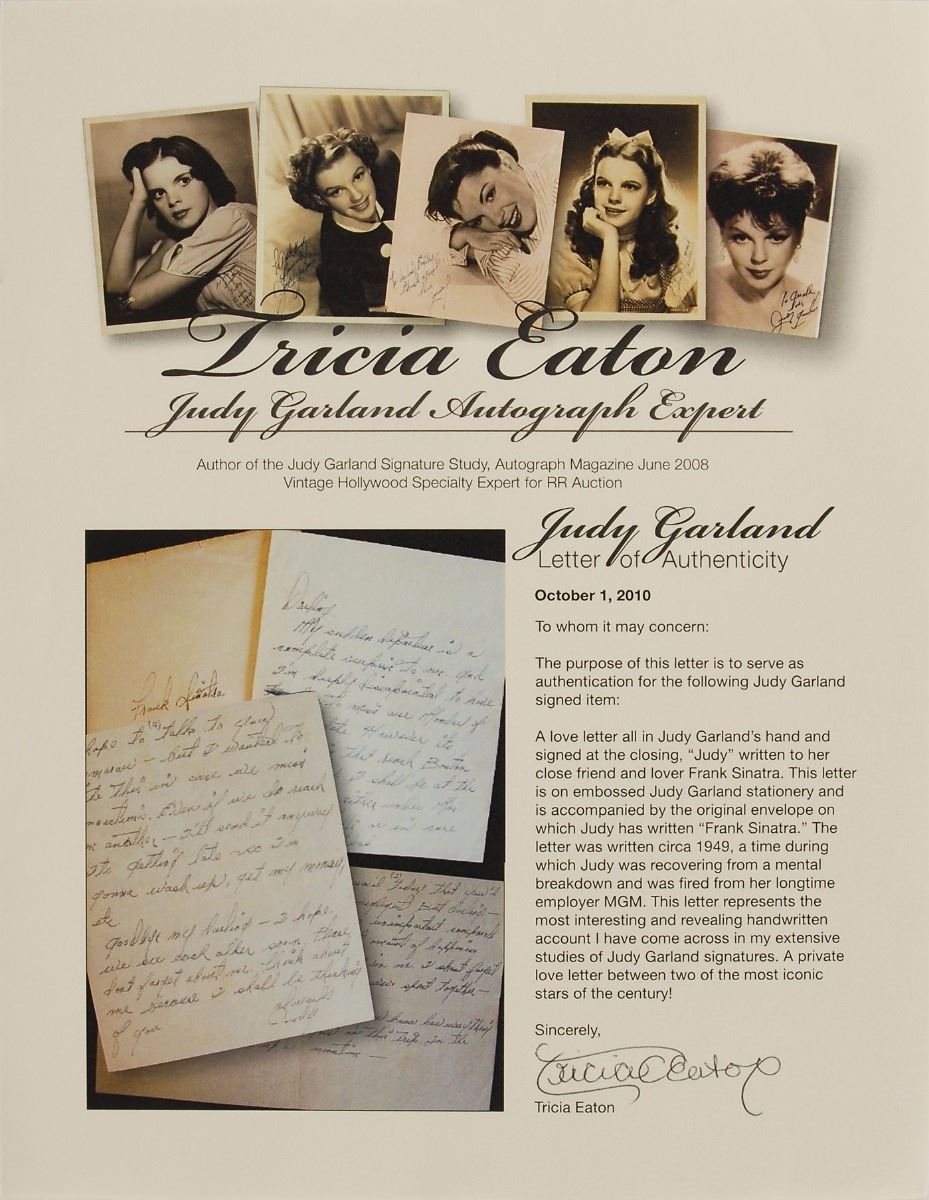 Tricia Eaton
Judy Garland Autograph Expert
Author of the Judy Garland Signature Study, Autograph Magazine June 2008
Vintage Hollywood Specialty Expert for RR Auction
Judy Garland
Letter of Authenticity
October 1, 2010
To whom it may concern:
The purpose of this letter is to serve as
authentication for the following Judy Garland
signed item:
A love letter all in Judy Garland's hand and
signed at the closing, “Judy” written to her
close friend and lover Frank Sinatra. This letter
is on embossed Judy Garland stationery and
is accompanied by the original envelope on
which Judy has written “Frank Sinatra.” The
letter was written circa 1949, a time during
which Judy was recovering from a mental
breakdown and was fired from her longtime
employer MGM. This letter represents the
most interesting and revealing handwritten
account I have come across in my extensive
studies of Judy Garland signatures. A private
love letter between two of the most iconic
stars of the century!
Sincerely,
Tricia Eaton
Tricia Eaton
Frank Sinatra
Darling
My sudden departure is a
complete surprise to me and
I'm deeply disappointed to have
to miss our
However its
that reach Boston
I shall be at the
either under
or in care
to talk to you
but I wanted to
this in case we miss
connections. Even if we do reach
one another — I'll send it anyway
Its getting late — so I'm
gonna wash up, get my money,
etc.
Goodbye my darling — I hope
we see each other soon. Please
dont forget about me. Think about
me because I shall be thinking
of you always
Judy
today that
But darling —
unimportant compared
amount of happiness
me. I shant forget
spent together —
know how
on this trip. In the
meantime —